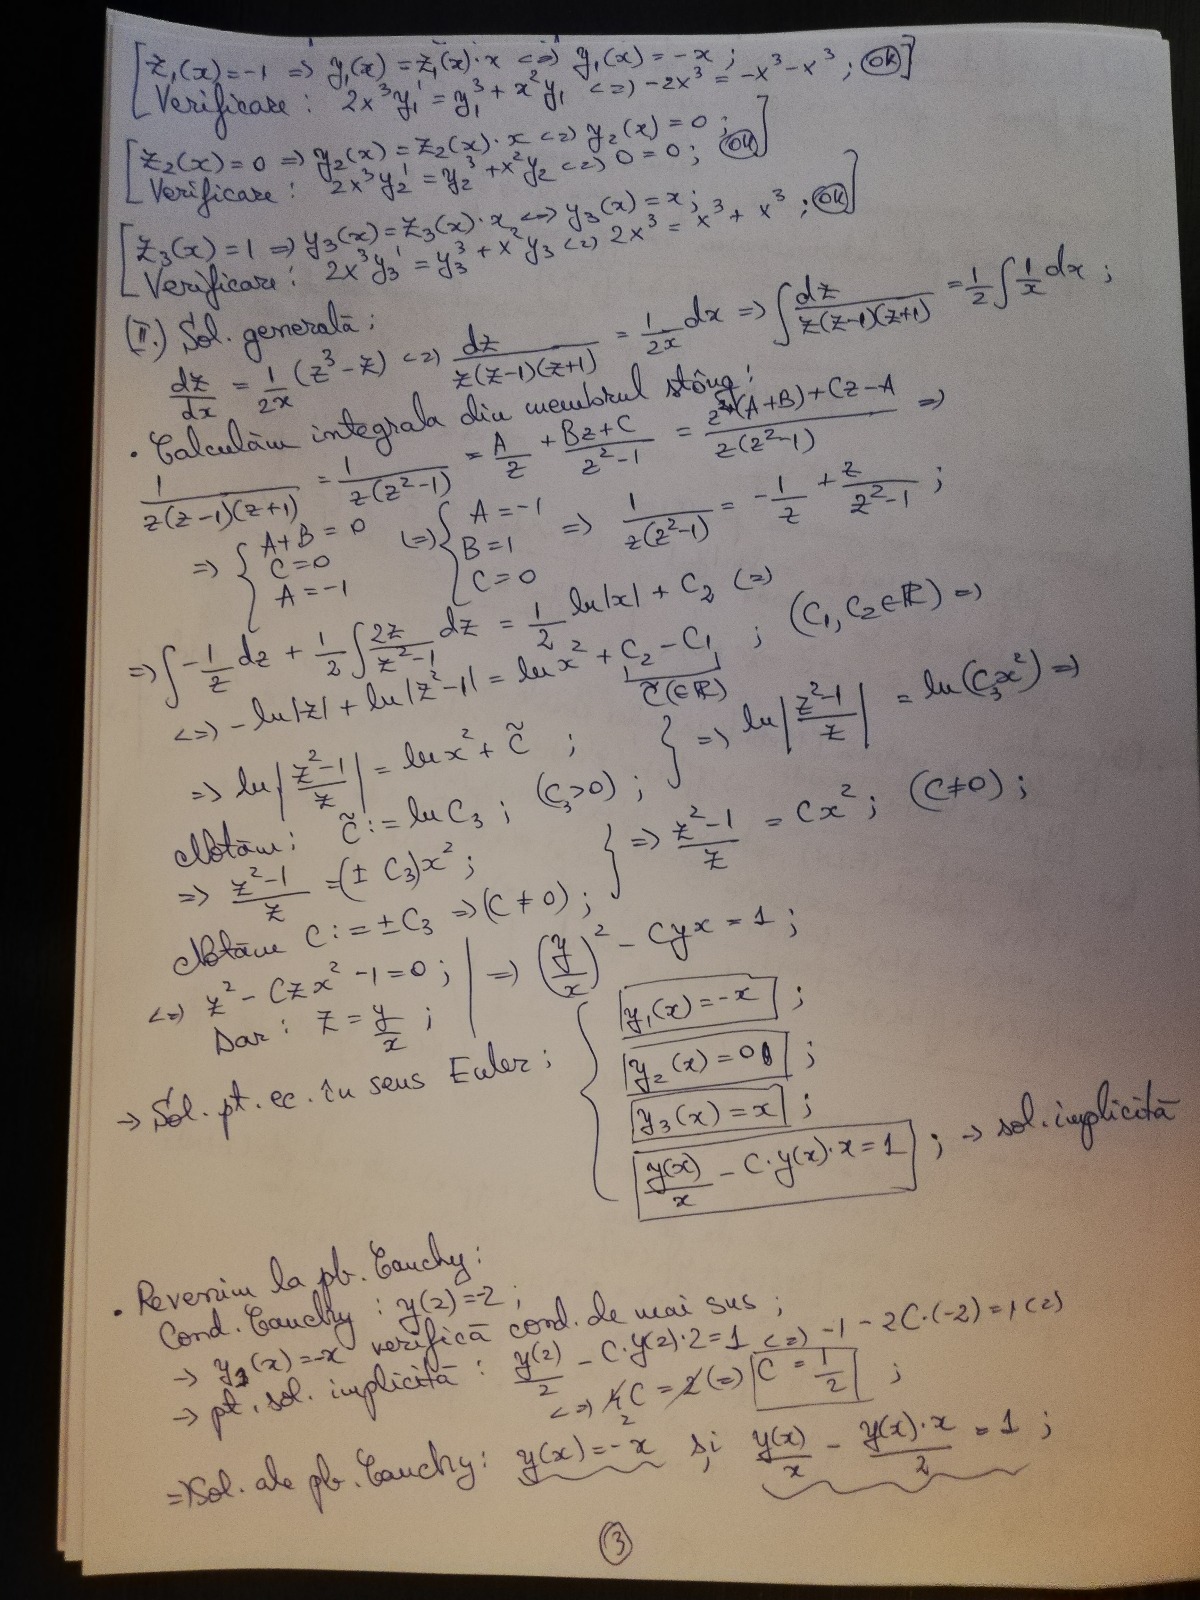 z₁(x)=-1 => y₁(x)=z₁(x)·x <=> y₁(x)=-x ;
Verificare: 2x³y₁' = y₁³ + x²y₁ <=> -2x³ = -x³-x³ ; OK
z₂(x)=0 => y₂(x)=z₂(x)·x <=> y₂(x)=0 ;
Verificare: 2x³y₂' = y₂³ + x²y₂ <=> 0=0 ; OK
z₃(x)=1 => y₃(x)=z₃(x)·x <=> y₃(x)=x ;
Verificare: 2x³y₃' = y₃³ + x²y₃ <=> 2x³ = x³ + x³ ; OK
(II.) Sol. generală:
dz/dx = 1/2x (z³-z) <=> dz/z(z-1)(z+1) = 1/2x dx => ∫ dz/z(z-1)(z+1) = 1/2 ∫ 1/x dx ;
• Calculăm integrala din membrul stâng:
1/z(z-1)(z+1) = 1/z(z²-1) = A/z + Bz+C/z²-1 = z²(A+B)+Cz-A/z(z²-1) =>
=> { A+B=0 C=0 A=-1 <=> { A=-1 B=1 C=0 => 1/z(z²-1) = -1/z + z/z²-1 ;
=> ∫ -1/z dz + 1/2 ∫ 2z/z²-1 dz = 1/2 ln|x| + C₂ <=>
<=> -ln|z| + ln|z²-1| = ln x² + C₂ - C₁ ; (C₁, C₂ ∈ ℝ) =>
C̃ (∈ℝ)
=> ln|z²-1/z| = ln x² + C̃ ;
Notăm: C̃ := ln C₃ ; (C₃>0) ; } => ln|z²-1/z| = ln(C₃x²) =>
=> z²-1/z = (± C₃)x² ;
Notăm C := ±C₃ => (C≠0) ; } => z²-1/z = Cx² ; (C≠0) ;
<=> z² - Czx² - 1 = 0 ;
Dar: z = y/x ; | => (y/x)² - Cyx = 1 ;
-> Sol. pt. ec. în sens Euler: { y₁(x) = -x ;
y₂(x) = 0 ;
y₃(x) = x ;
y(x)/x - C·y(x)·x = 1 ; -> sol. implicită
• Revenim la pb. Cauchy:
Cond. Cauchy: y(2)=-2 ;
-> y₁(x)=-x verifică cond. de mai sus ;
-> pt. sol. implicită: y(2)/2 - C·y(2)·2=1 <=> -1 - 2C·(-2)=1 <=>
<=> 4C = 2 <=> C = 1/2 ;
=> Sol. ale pb. Cauchy: y(x)=-x și y(x)/x - y(x)·x/2 = 1 ;
3